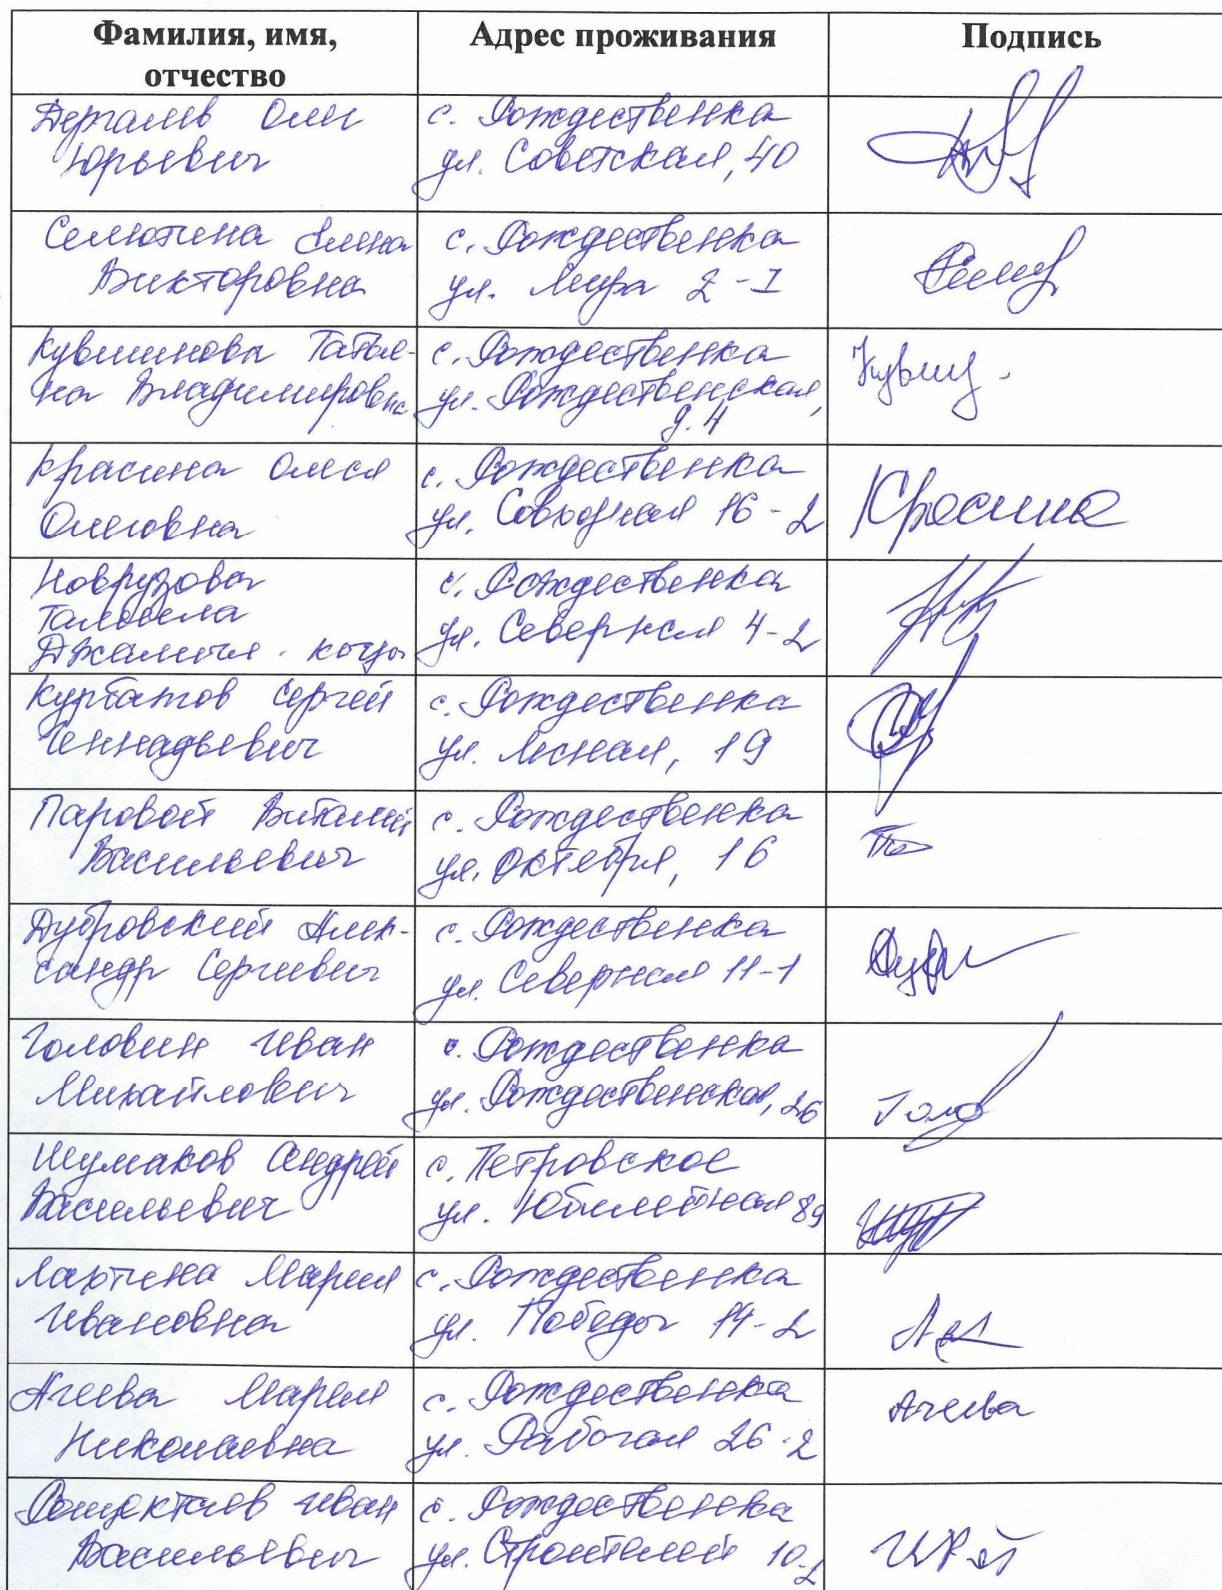 Фамилия, имя,
отчество
Адрес проживания
Подпись
Дергалев Олег
Юрьевич
с. Рождественка
ул. Советская, 40
Селютина Елена
Викторовна
с. Рождественка
ул. Мира 2-1
Кувшинова Татья-
на Владимировна
с. Рождественка
ул. Рождественская,
д. 4
Кувш
Красина Олеся
Олеговна
с. Рождественка
ул. Свободная 16-2
Красина
Новрузова
Джамиля кызы
с. Рождественка
ул. Северная 4-2
Курбатов Сергей
Геннадьевич
с. Рождественка
ул. Лесная, 19
Паровой Виталий
Васильевич
с. Рождественка
ул. Октября, 16
Дубровский Алек-
сандр Сергеевич
с. Рождественка
ул. Северная 11-1
Головин Иван
Михайлович
с. Рождественка
ул. Рождественская, 26
Шумаков Андрей
Васильевич
с. Петровское
ул. Юбилейная 89
Лахтина Мария
Ивановна
с. Рождественка
ул. Победы 14-2
Агеева Мария
Николаевна
с. Рождественка
ул. Рабочая 26-2
Агеева
Иван
Васильевич
с. Рождественка
ул. Строителей 10-2